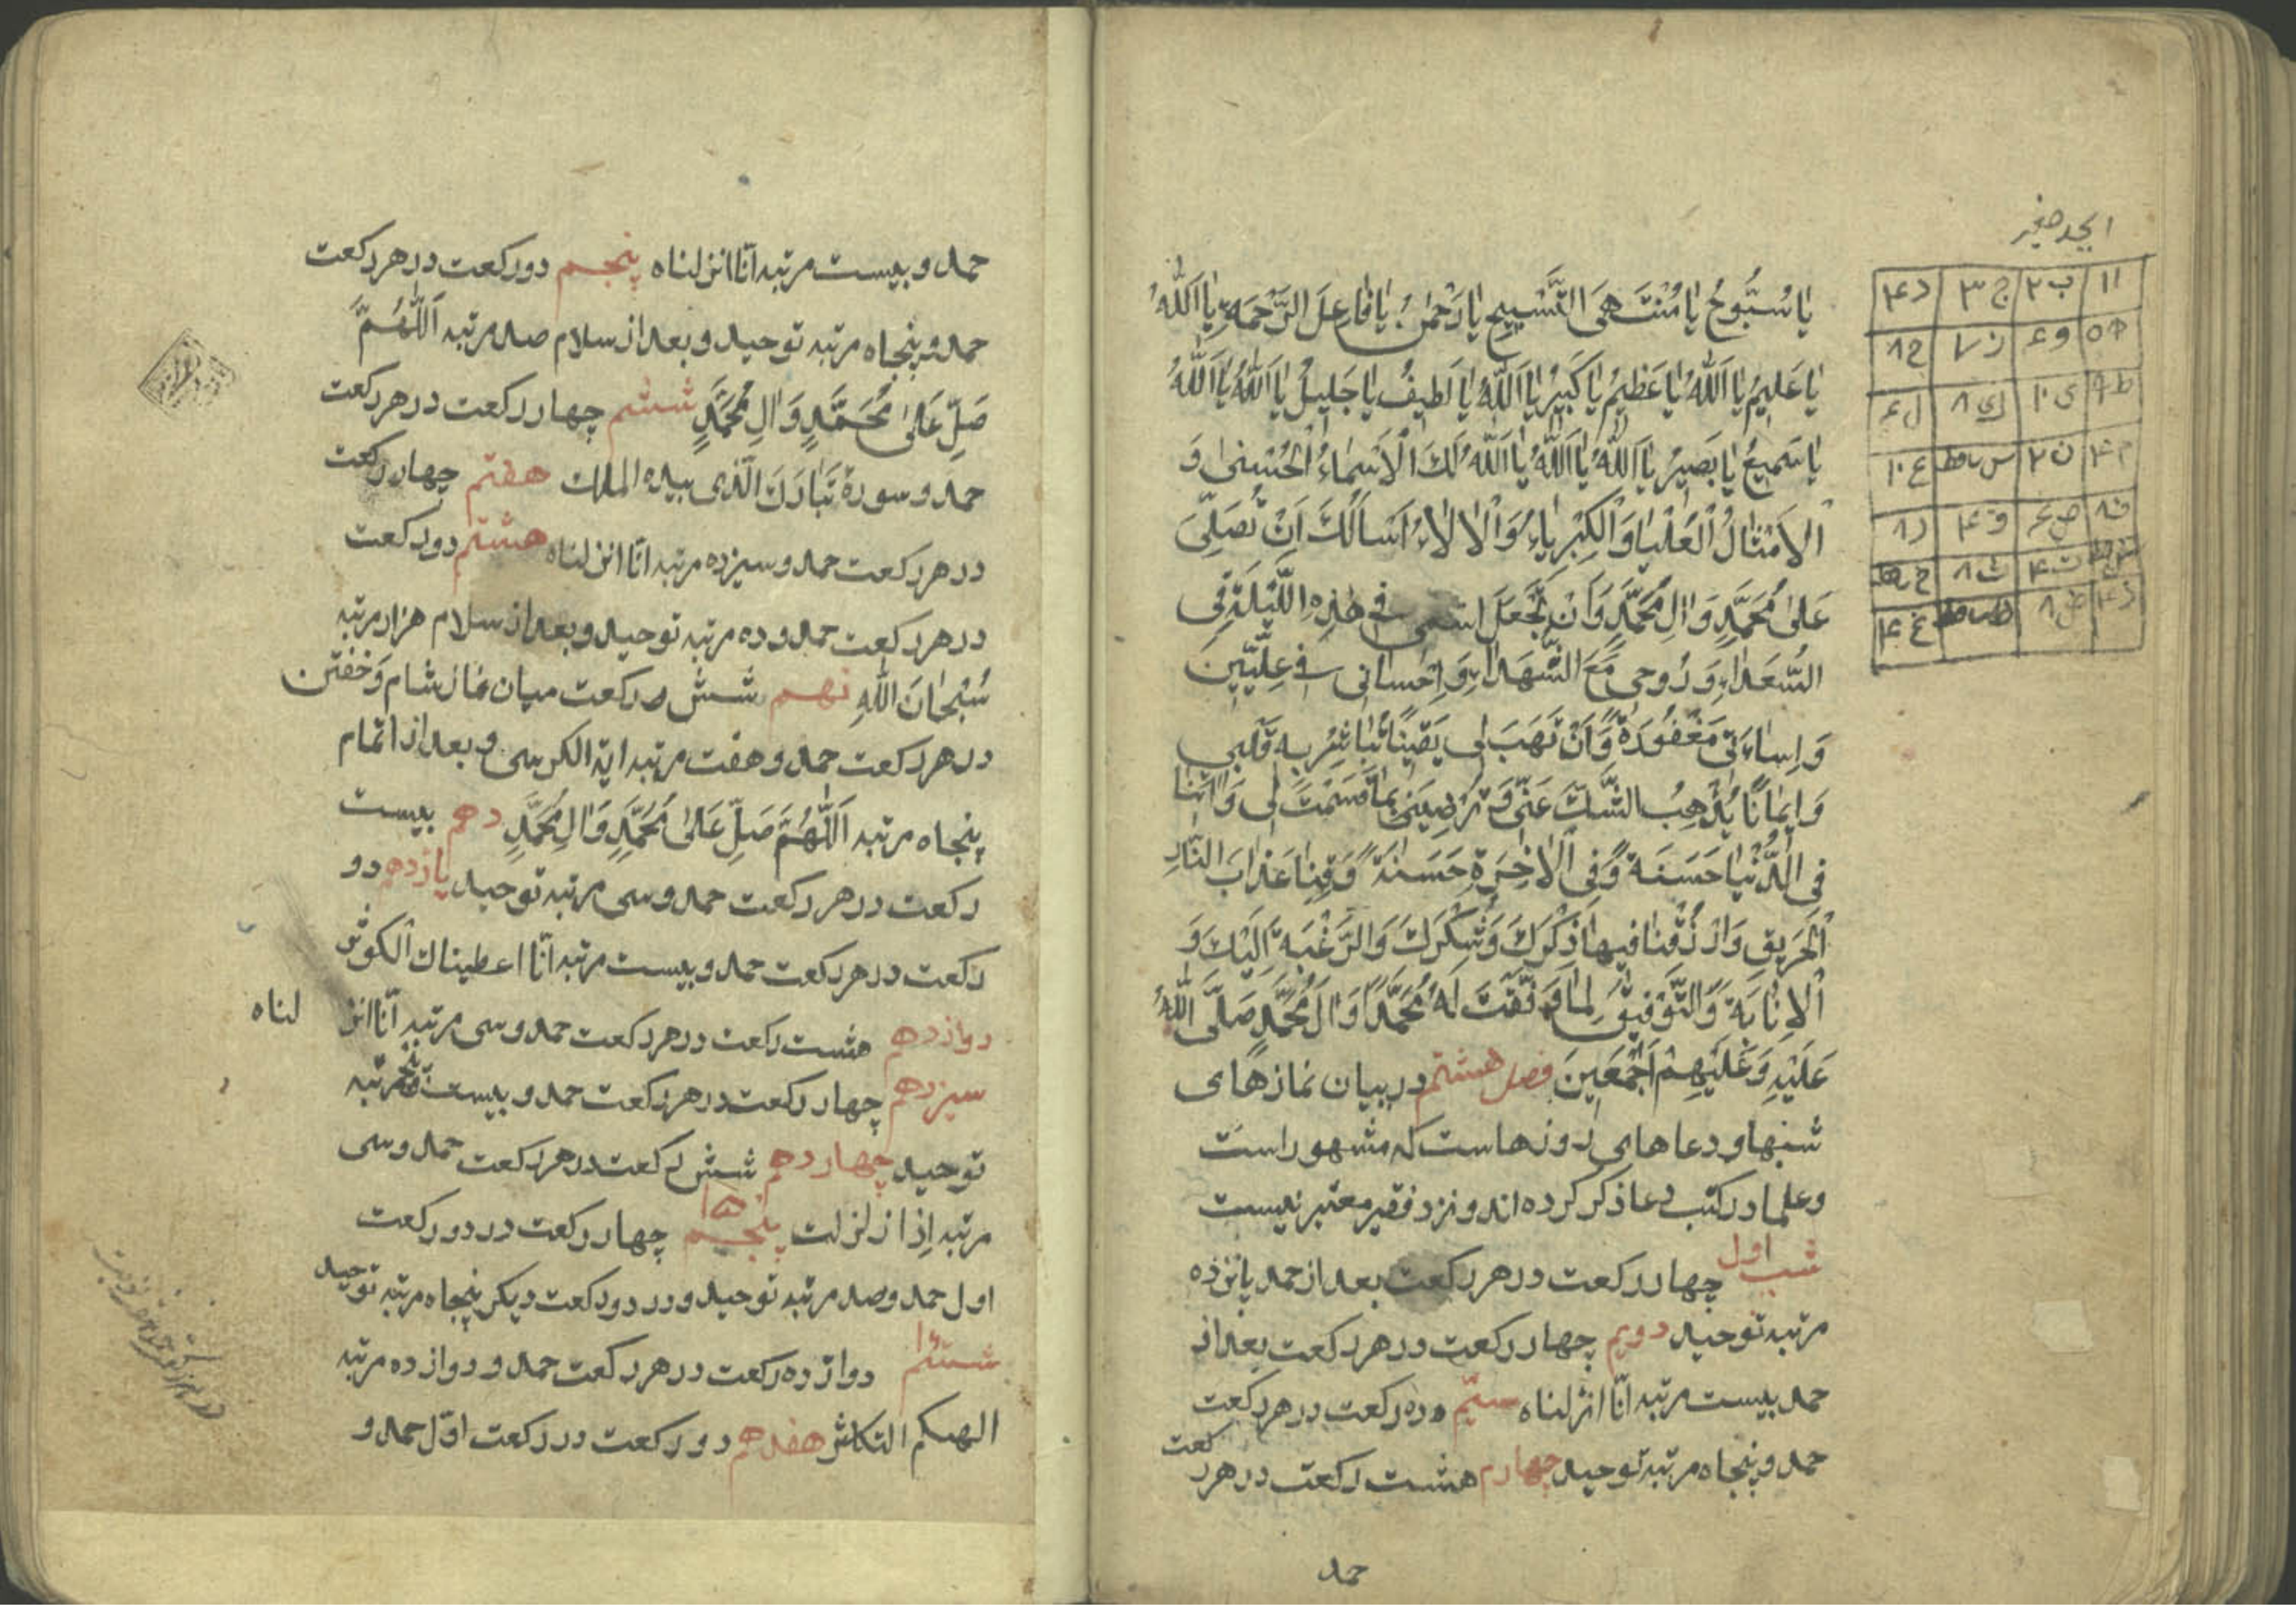 ابجد صغیر
ا ۱ ب ۲ ج ۳ د ۴
ه ۵ و ۶ ز ۷ ح ۸
ط ۹ ی ۱۰ ک ۸ ل ۶
م ۴ ن ۲ س ساقط ع ۱۰
ف ۸ ص ۶ ق ۴ ر ۸
ت ۴ ث ۸
ذ ۴ ض ۸ ظ ساقط غ ۴
یٰا سُبُّوحُ یٰا مُنْتَهَی التَّسْبِیحِ یٰا رَحْمٰنُ یٰا فٰاعِلَ الرَّحْمَةِ یٰا اَللّٰهُ
یٰا عَلِیمُ یٰا اَللّٰهُ یٰا عَظِیمُ یٰا کَبِیرُ یٰا اَللّٰهُ یٰا لَطِیفُ یٰا جَلِیلُ یٰا اَللّٰهُ یٰا اَللّٰهُ
یٰا سَمِیعُ یٰا بَصِیرُ یٰا اَللّٰهُ یٰا اَللّٰهُ یٰا اَللّٰهُ لَكَ الْاَسْمٰاءُ الْحُسْنیٰ وَ
الْاَمْثٰالُ الْعُلْیٰا وَ الْکِبْرِیٰاءُ وَ الْاٰلٰاءُ اَسْاَلُكَ اَنْ تُصَلِّیَ
عَلیٰ مُحَمَّدٍ وَ اٰلِ مُحَمَّدٍ وَ اَنْ تَجْعَلَ اسْمِی فِی هٰذِهِ اللَّیْلَةِ فِی
السُّعَدٰاءِ وَ رُوحِی مَعَ الشُّهَدٰاءِ وَ اِحْسٰانِی فِی عِلِّیِّینَ
وَ اِسٰاءَتِی مَغْفُورَةً وَ اَنْ تَهَبَ لِی یَقِینًا تُبٰاشِرُ بِهِ قَلْبِی
وَ اِیمٰانًا یُذْهِبُ الشَّكَّ عَنِّی وَ تُرْضِیَنِی بِمٰا قَسَمْتَ لِی وَ اٰتِنٰا
فِی الدُّنْیٰا حَسَنَةً وَ فِی الْاٰخِرَةِ حَسَنَةً وَ قِنٰا عَذٰابَ النّٰارِ
الْحَرِیقِ وَ ارْزُقْنٰا فِیهٰا ذِکْرَكَ وَ شُکْرَكَ وَ الرَّغْبَةَ اِلَیْكَ وَ
الْاِنٰابَةَ وَ التَّوْفِیقَ لِمٰا وَفَّقْتَ لَهُ مُحَمَّدًا وَ اٰلَ مُحَمَّدٍ صَلَّی اللّٰهُ
عَلَیْهِ وَ عَلَیْهِمْ اَجْمَعِینَ فصل هشتم در بیان نمازهای
شبها و دعاهای روزهاست که مشهور است
و علما در کتب دعا ذکر کرده اند و نزد فقیر معتبر نیست
شب اول چهار رکعت در هر رکعت بعد از حمد پانزده
مرتبه توحید دویم چهار رکعت در هر رکعت بعد از
حمد بیست مرتبه انّا انزلناه سیّم ده رکعت در هر رکعت
حمد و پنجاه مرتبه توحید چهارم هشت رکعت در هر رکعت
حمد
حمد و بیست مرتبه انّا انزلناه پنجم دو رکعت در هر رکعت
حمد و پنجاه مرتبه توحید و بعد از سلام صد مرتبه اَللّٰهُمَّ
صَلِّ عَلیٰ مُحَمَّدٍ وَ اٰلِ مُحَمَّدٍ ششم چهار رکعت در هر رکعت
حمد و سورة تَبٰارَكَ الَّذی بیده الملك هفتم چهار رکعت
در هر رکعت حمد و سیزده مرتبه انّا انزلناه هشتم دو رکعت
در هر رکعت حمد و ده مرتبه توحید و بعد از سلام هزار مرتبه
سُبْحٰانَ اللّٰهِ نهم شش رکعت میان نماز شام و خفتن
در هر رکعت حمد و هفت مرتبه ایة الکرسی و بعد از اتمام
پنجاه مرتبه اَللّٰهُمَّ صَلِّ عَلیٰ مُحَمَّدٍ وَ اٰلِ مُحَمَّدٍ دهم بیست
رکعت در هر رکعت حمد و سی مرتبه توحید یازدهم دو
رکعت در هر رکعت حمد و بیست مرتبه انّا اعطیناك الکوثر
دوازدهم هشت رکعت در هر رکعت حمد و سی مرتبه انّا انز لناه
سیزدهم چهار رکعت در هر رکعت حمد و بیست و پنج مرتبه
توحید چهاردهم شش رکعت در هر رکعت حمد و سی
مرتبه اِذا زلزلت پنجم ۱۵ چهار رکعت در دو رکعت
اول حمد و صد مرتبه توحید و در دو رکعت دیکر پنجاه مرتبه توحید
ششم دوازده رکعت در هر رکعت حمد و دوازده مرتبه
الهیکم التکاثر هفدهم دو رکعت در رکعت اوّل حمد و